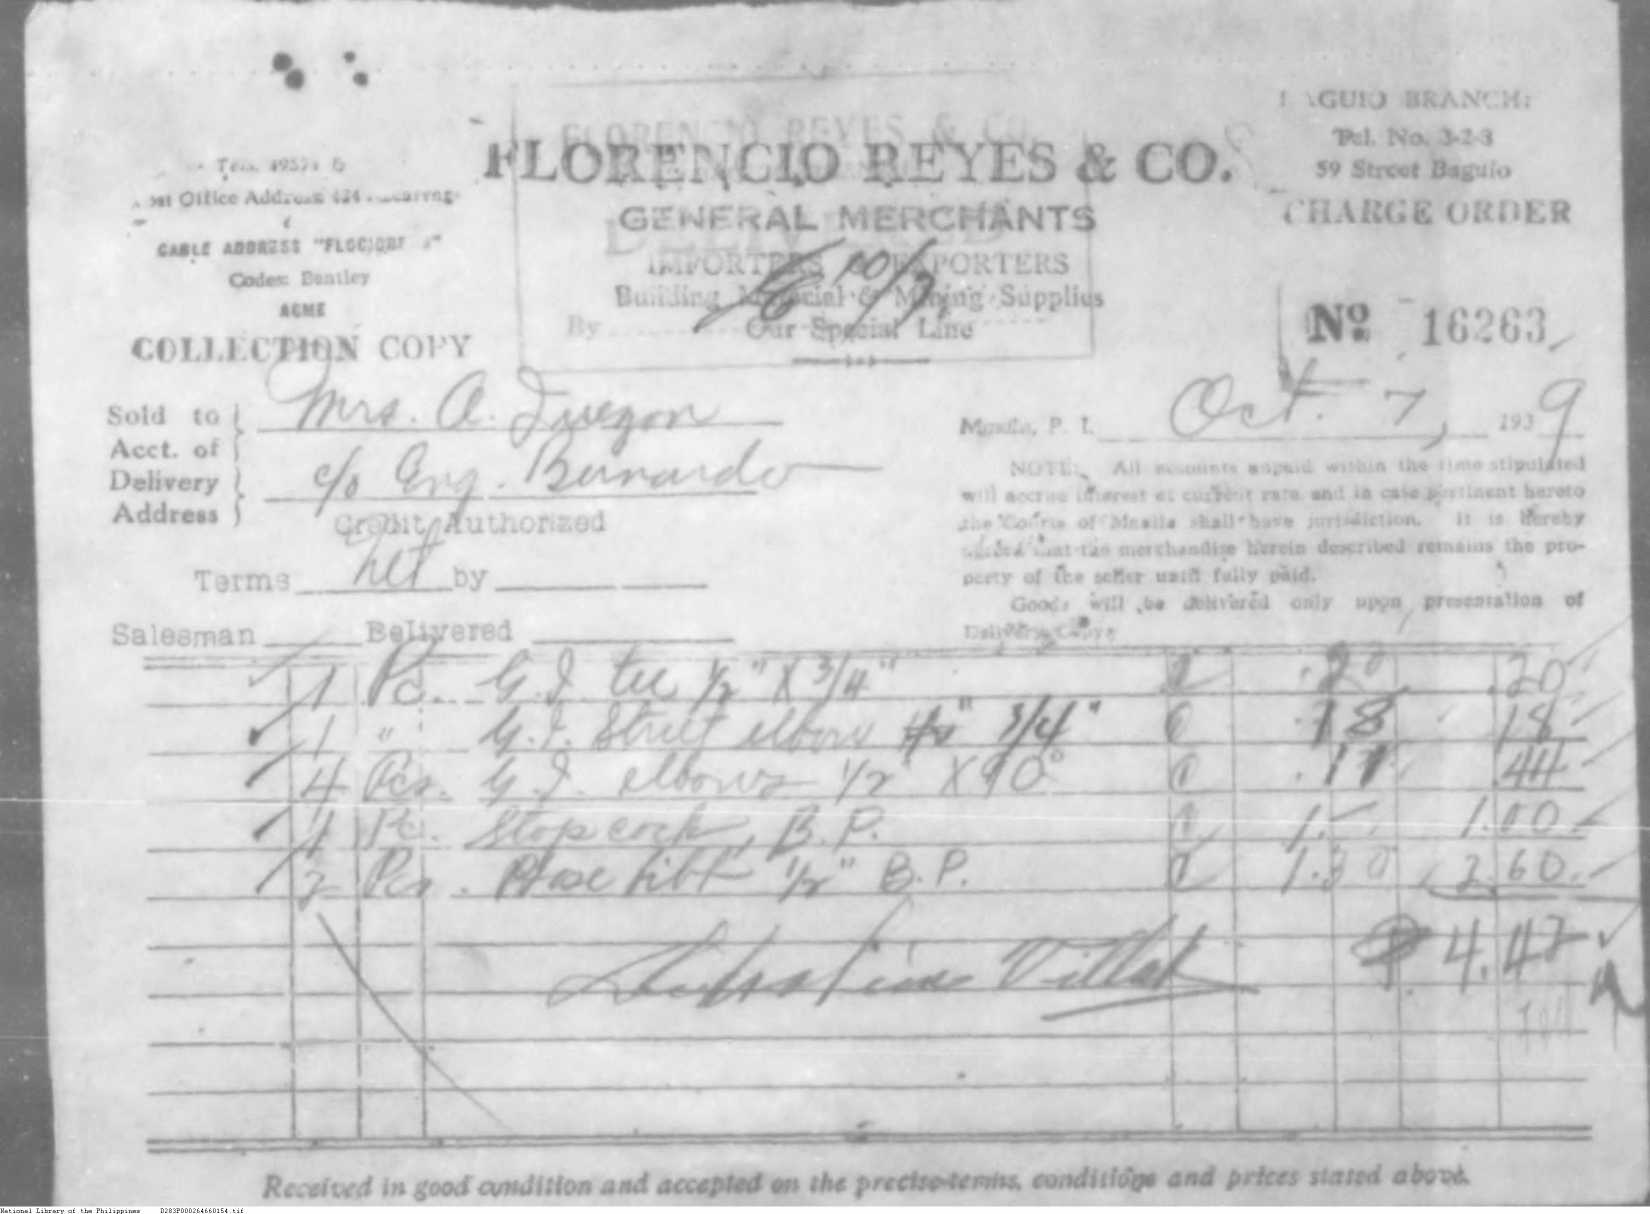 BRANCH:
Tel. No. 3-2-3
59 Street Baguio
CHARGE ORDER
FLORENCIO REYES & CO.
FLORENCIO REYES & CO.
GENERAL MERCHANTS
IMPORTERS EXPORTERS
Building Material & Mining Supplies
Our Special Line
By
10/7
Post Office Address
CABLE ADDRESS
Codes: Bentley
ACME
COLLECTION COPY
No 16263
Sold to Mrs. A.
Acct. of
Delivery c/o Eng. Bernardo
Address
Credit Authorized
Terms net by
Salesman Delivered
Manila, P. I. Oct. 7, 1939
NOTE: All accounts unpaid within the time stipulated
will accrue interest at current rate and in case pertinent hereto
the Courts of Manila shall have jurisdiction. It is hereby
that the merchandise herein described remains the pro-
perty of the seller until fully paid.
Goods will be delivered only upon presentation of
Delivery Copy.
1 Pc. G.I. tee 1/2" X 3/4" @ .20 .20
1 " G.I. Street elbow 3/4" @ .18 .18
4 Pcs. G.I. elbows 1/2 X 90° @ .11 .44
1 Pc. Stop cock, B.P. @ 1.- 1.00
2 Pcs. Hose bibb 1/2" B.P. @ 1.30 2.60
₱ 4.42
Received in good condition and accepted on the precise terms, conditions and prices stated above.
National Library of the Philippines D283P000264660154.tif